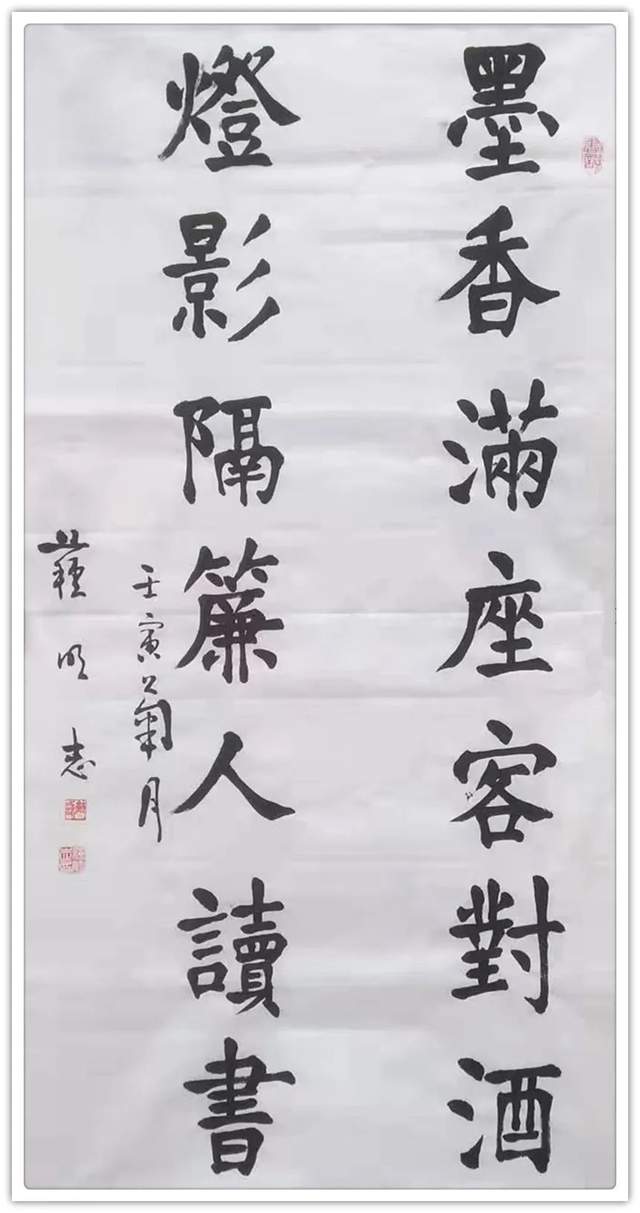 墨香滿座客對酒
燈影隔簾人讀書
壬寅菊月
蘇明志